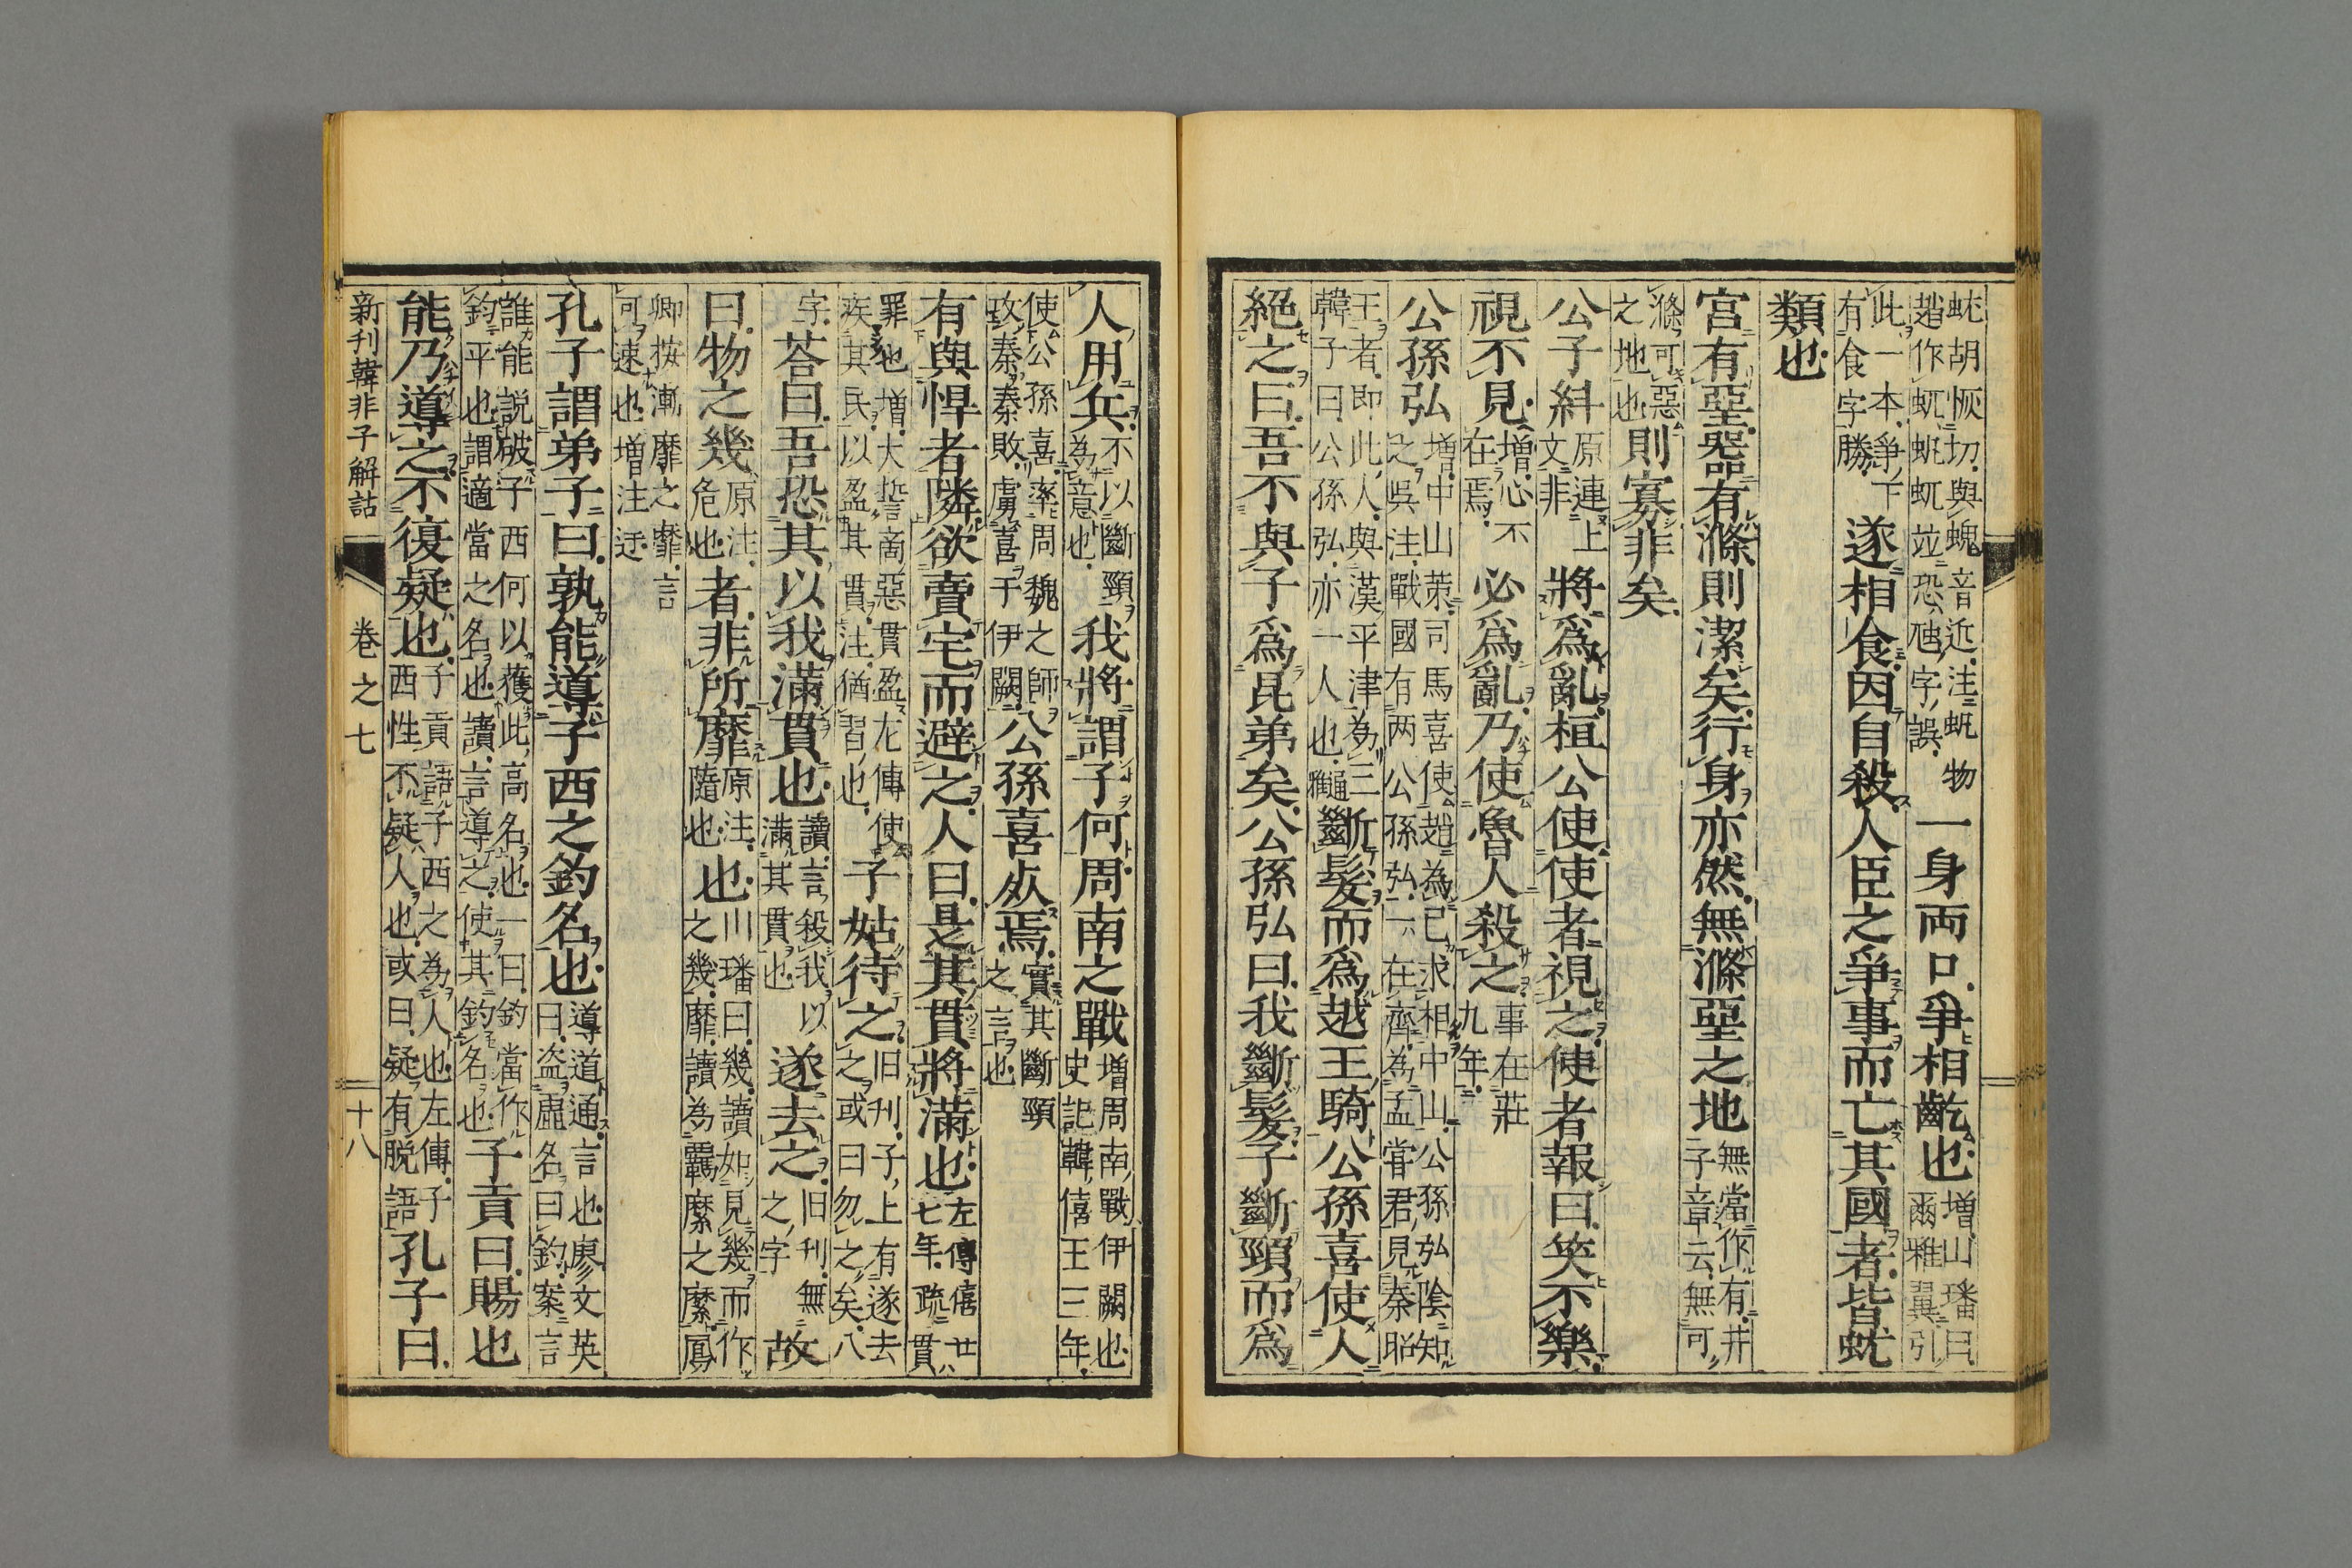 蚘胡恢切與蝰音近注蚘物
趙作蚖蚘蚖竝恐虺字誤
一身両口爭相齕也
増山璠曰
爾雅翼引
此一本爭下
有食字勝
遂相食因自殺人臣之爭事而亡其國者皆蚘
類也
宮有堊器有滌則潔矣行身亦然無滌堊之地
無當作有井
子章云無可
滌可惡
之地也
則寡非矣
公子糾
原連上
文非
將爲亂桓公使使者視之使者報曰笑不樂
視不見
増心不
在焉
必爲亂乃使魯人殺之
事在莊
九年
公孫弘
増中山策司馬喜使趙為已求相中山公孫弘陰知
之吳注戰國有两公孫弘一在齊為孟甞君見秦昭
王者即此人與漢平津為三
韓子曰公孫弘亦一人也
斷髮而爲越王騎公孫喜使人
絕之曰吾不與子爲昆弟矣公孫弘曰我斷髮子斷頸而爲
人用兵
不以斷頸
為意也
我將謂子何周南之戰
増周南戰伊闕也
史記韓僖王三年
使公孫喜率周魏之師
攻秦秦敗虜喜于伊闕
公孫喜㱙焉
實其斷頸
之言也
有與悍者隣欲賣宅而避之人曰是其貫將滿也
左傳僖廿
七年疏貫
罪也増大誓商惡貫盈左傳使
疾其民以盈其貫注猶習也
子姑待之
旧刊子上有遂去
之或曰勿之矣八
字
荅曰吾恐其以我滿貫也
讀言殺我以
滿其貫也
遂去之
旧刊無
之字
故
曰物之幾
原注
危也
者非所靡
原注
隨也
也
川璠曰幾讀如見幾而作
之幾靡讀為羈縻之縻鳳
卿按漸靡之靡言
可速也増注迂
孔子謂弟子曰孰能導子西之釣名也
導道通言也廖文英
曰盗虛名曰釣案言
誰能説破子西何以獲此高名也一曰釣當作
鈞平也謂適當之名也讀言導之使其釣名也
子貢曰賜也
能乃導之不復疑也
子貢語子西之為人也左傳子
西性不疑人也或曰疑有脱語
孔子曰
新刊韓非子解詁
巻之七
十八